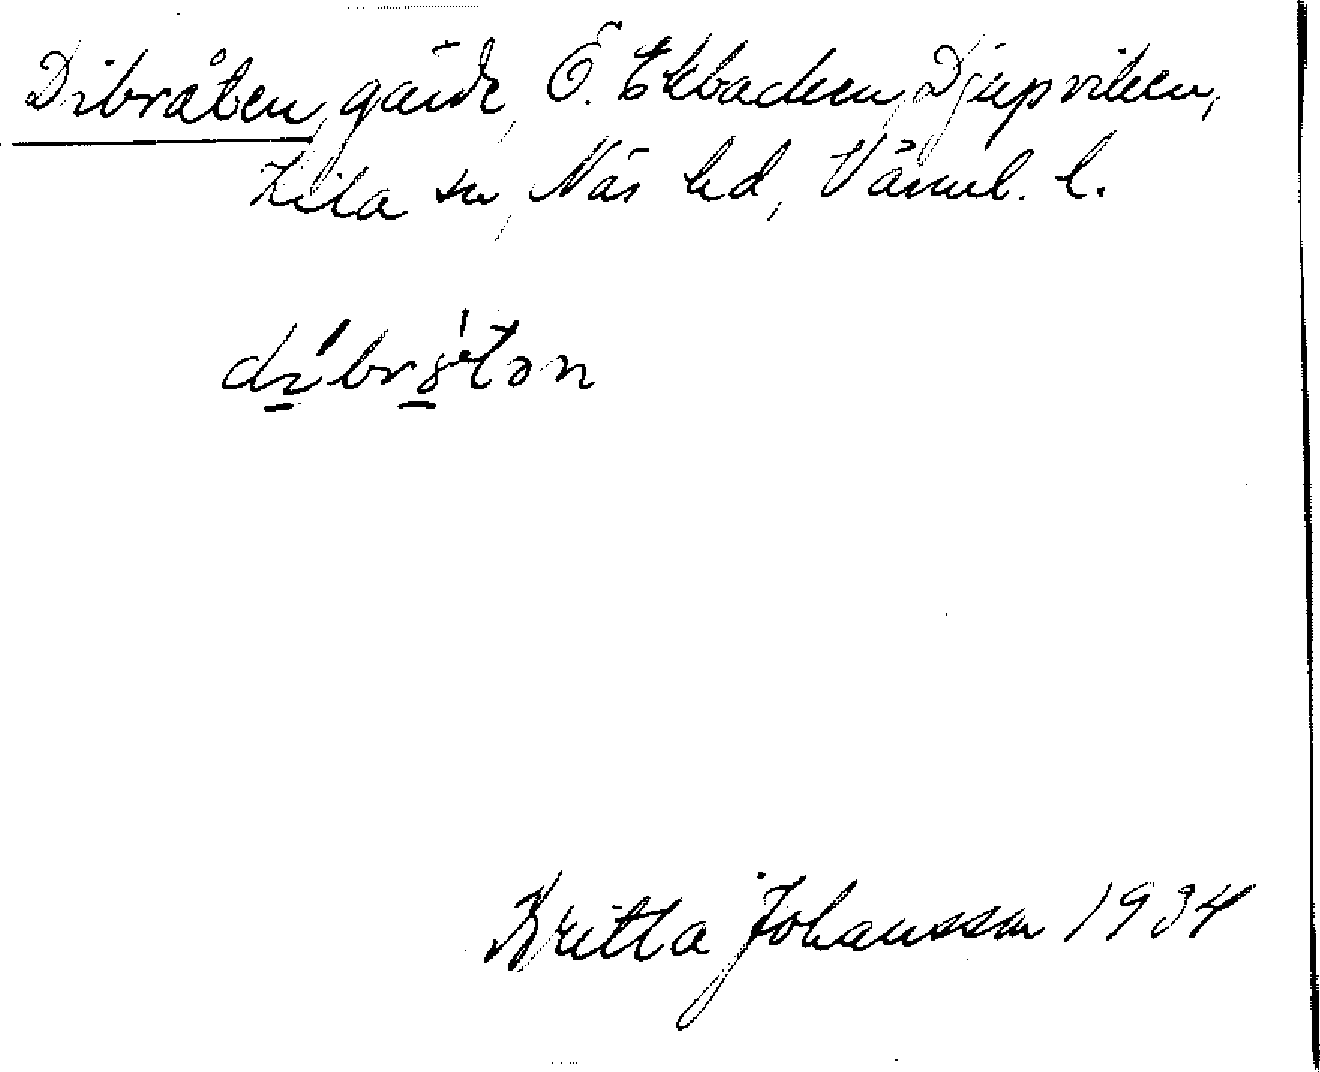 Dibråten, gärde, Ö. Ekbacken, Djupviken,
Kila sn, Näs hd, Värml. l.
di'brå'tən
Britta Johansson 1934